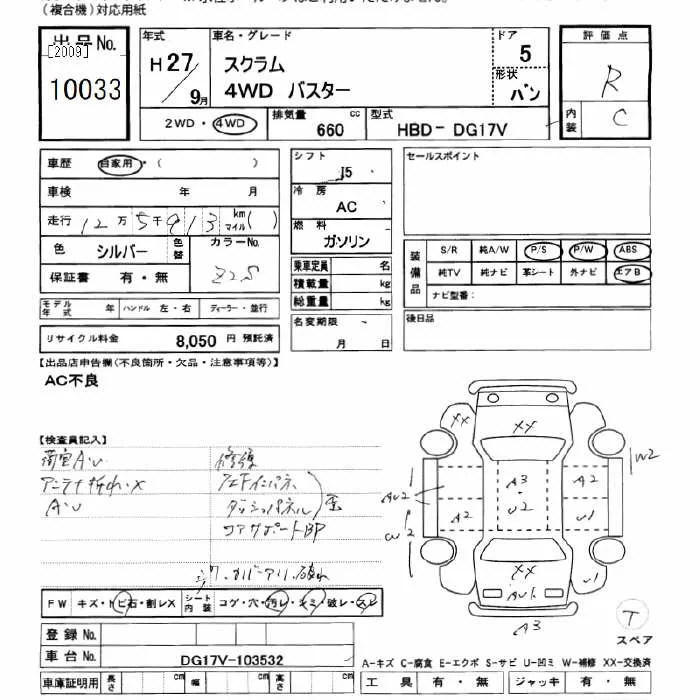 （複合機）対応用紙
出品No.
[2009]
10033
年式
H 27／9月
車名・グレード
スクラム
4WD バスター
ドア
5
形状
バン
評価点
R
内装
C
2WD・4WD
排気量
660 cc
型式
HBD- DG17V
車歴 自家用・( )
車検 年 月
走行 12万5千913 km マイル ( )
色 シルバー 色替
カラーNo.
Z2S
保証書 有・無
モデル年式 年
ハンドル 左・右
ディーラー・並行
リサイクル料金 8,050 円 預託済
シフト
I5
冷房
AC
燃料
ガソリン
乗車定員 名
積載量 kg
総重量 kg
名変期限
月 日
セールスポイント
装備品
S/R 純A/W P/S P/W ABS
純TV 純ナビ 革シート 外ナビ エアB
ナビ型番：
後日品
【出品店申告欄(不良箇所・欠品・注意事項等)】
AC不良
【検査員記入】
A・U
アンテナ折れ・X
A・U
修復
ダッシュパネル
コアサポートBP
XX
XX
A3
U2
A2
A2
U1
W2
AU2
W2
XX
AU1
U1
A3
T
スペア
FW キズ・トビ石・割レX
シート内装 コゲ・穴・汚レ・キミ・破レ・スレ
登録No.
車台No. DG17V-103532
車庫証明用 長さ cm 幅 cm 高さ cm
A-キズ C-腐食 E-エクボ S-サビ U-凹ミ W-補修 XX-交換済
工具 有・無 ジャッキ 有・無